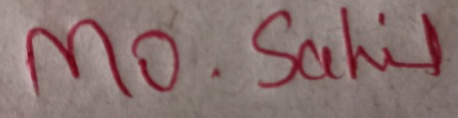 Mo. Sahil